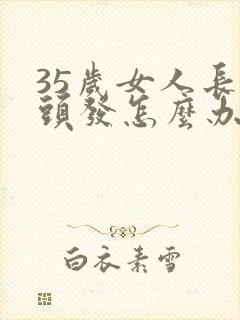 35歲女人長
頭發怎麼办
白衣素雪